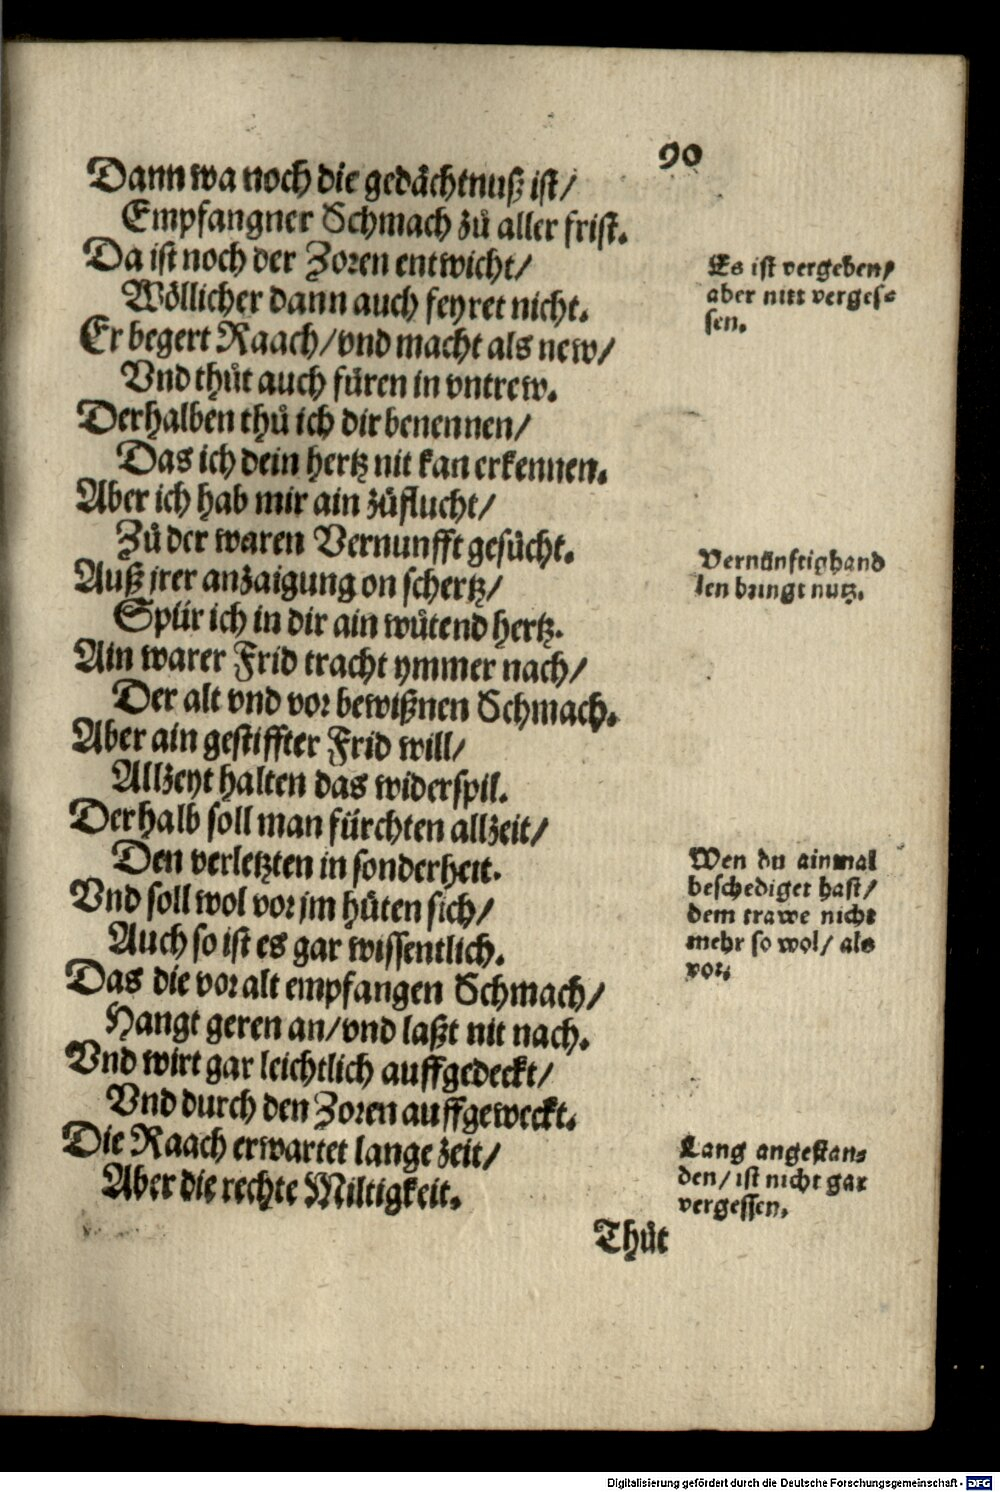 90
Dann wa noch die gedächtnuß ist/
Empfangner Schmach zů aller frist.
Da ist noch der Zoren entwicht/
Wöllicher dann auch feyret nicht.
Er begert Raach/vnd macht als new/
Vnd thůt auch füren in vntrew.
Derhalben thů ich dir benennen/
Das ich dein hertz nit kan erkennen.
Aber ich hab mir ain zůflucht/
Zů der waren Vernunfft gesůcht.
Auß jrer anzaigung on schertz/
Spür ich in dir ain wůtend hertz.
Ain warer Frid tracht ymmer nach/
Der alt vnd vor bewißnen Schmach.
Aber ain gestiffter Frid will/
Allzeyt halten das widerspil.
Derhalb soll man fürchten allzeit/
Den verletzten in sonderheit.
Vnd soll wol vor jm hůten sich/
Auch so ist es gar wissentlich.
Das die vor alt empfangen Schmach/
Hangt geren an/vnd laßt nit nach.
Vnd wirt gar leichtlich auffgedeckt/
Vnd durch den Zoren auffgeweckt.
Die Raach erwartet lange zeit/
Aber die rechte Miltigkeit.
Thůt
Es ist vergeben/
aber nitt verges-
sen.
Vernünftig hand
len bringt nutz.
Wen du ainmal
beschediget hast/
dem trawe nicht
mehr so wol/ als
vor.
Lang angestan-
den/ist nicht gar
vergessen.
Digitalisierung gefördert durch die Deutsche Forschungsgemeinschaft - DFG